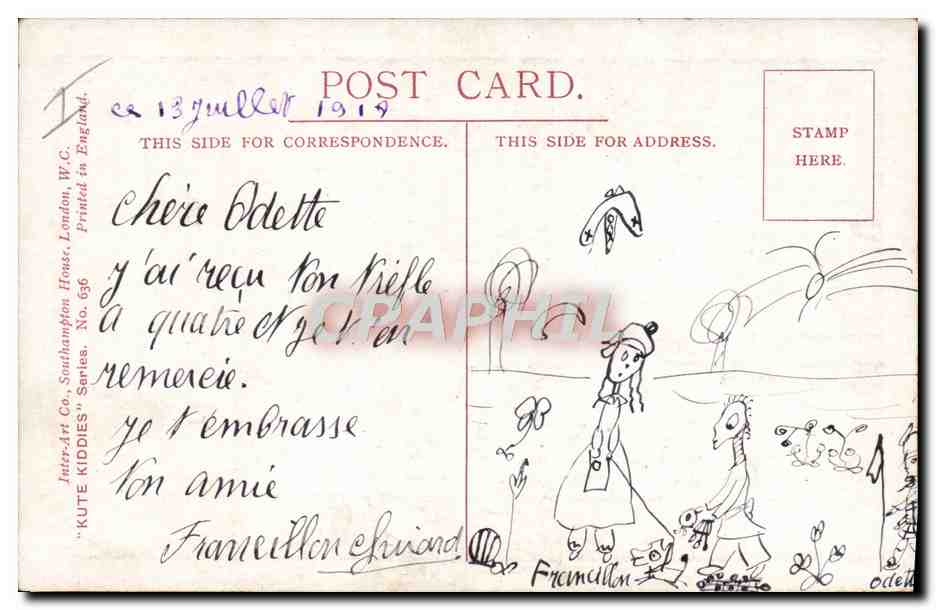 POST CARD.
ce 13 Juillet 1919
THIS SIDE FOR CORRESPONDENCE.
THIS SIDE FOR ADDRESS.
STAMP
HERE.
Inter-Art Co., Southampton House, London, W.C. Printed in England.
"KUTE KIDDIES" Series. No. 636
chère Odette
j'ai reçu ton trèfle
a quatre et je t'en
remercie.
je t'embrasse
ton amie
Francillon
Francillon
Odette
CPARAMA